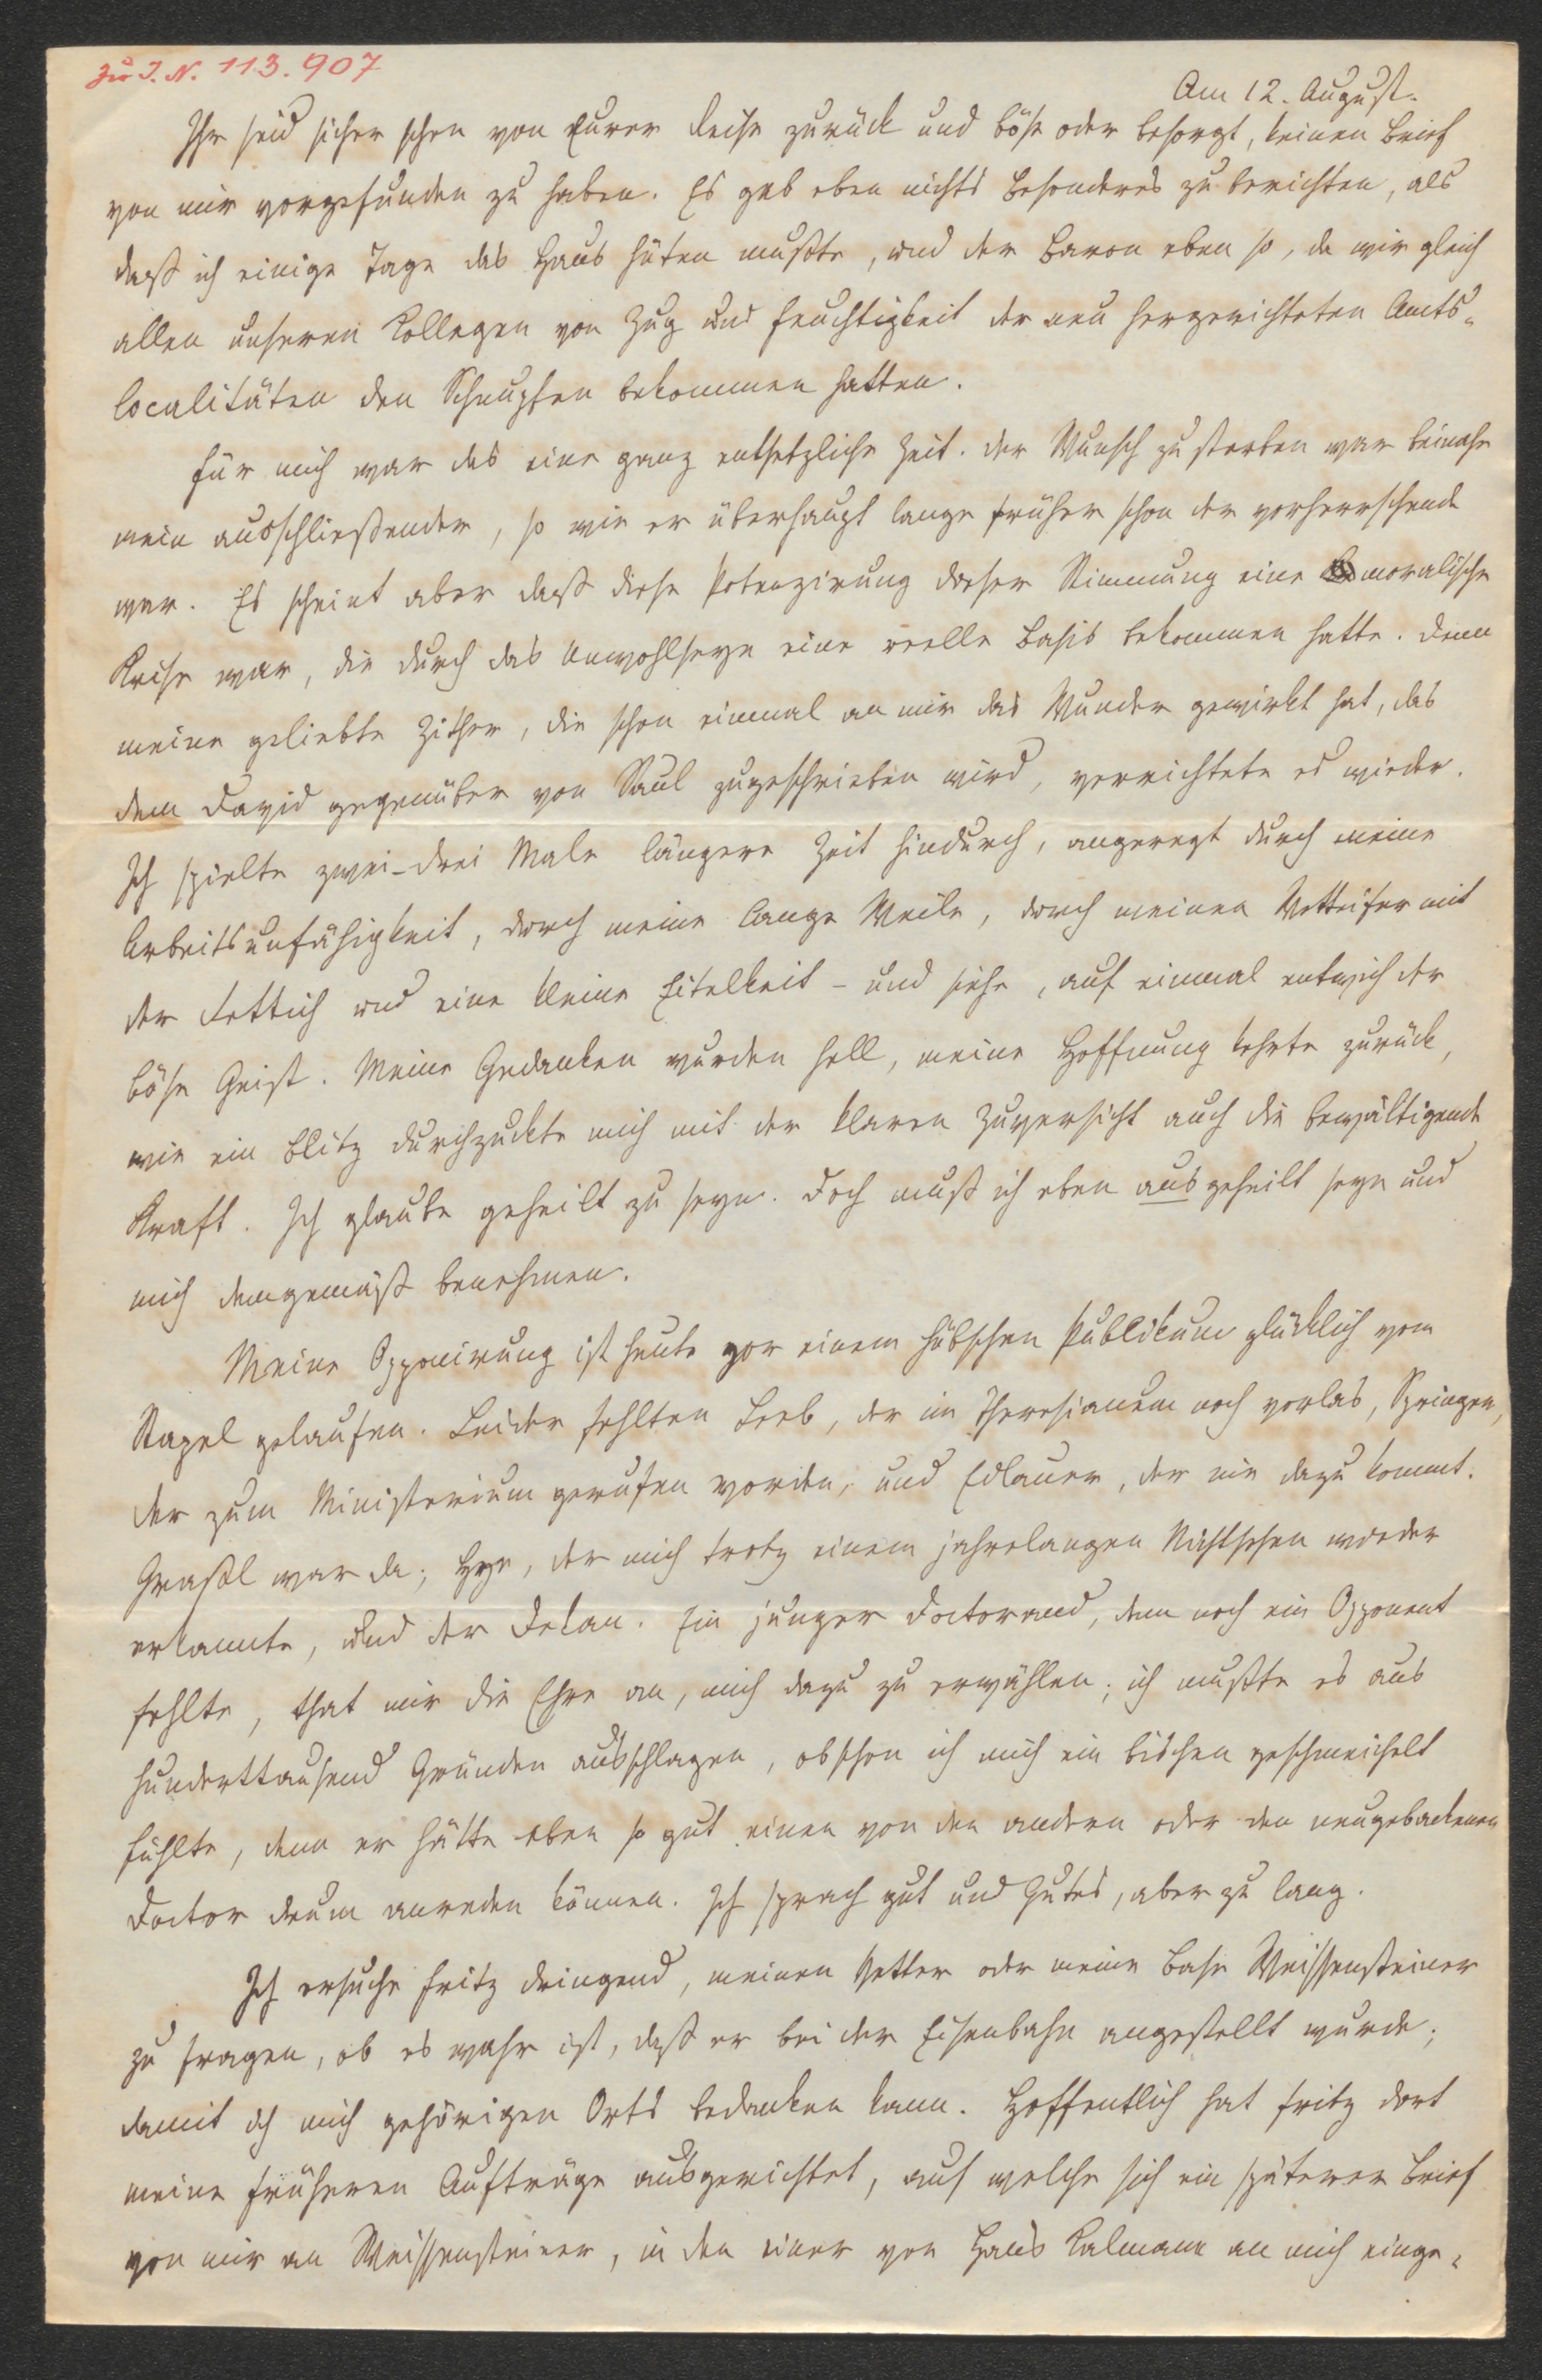 Zu I. N. 113.907
Am 12. August.
Ihr seid sicher schon von Eurer Reise zurück und böse oder besorgt, keinen Brief
von mir vorgefunden zu haben. Es gab eben nichts Besonderes zu berichten, als
daß ich einige Tage das Haus hüten mußte, und der Baron eben so, da wir gleich
allen unseren Collegen von Zug und Feuchtigkeit der neu hergerichteten Amts-
localitäten den Schnupfen bekommen hatten.
Für mich war das eine ganz entsetzliche Zeit. Der Wunsch zu sterben war beinahe
mein ausschließender, so wie er überhaupt lange früher schon der vorherrschende
war. Es scheint aber daß diese Potenzirung dieser Stimmung eine moralische
Krise war, die durch das Unwohlseyn eine reelle Basis bekommen hatte. Denn
meine geliebte Zither, die schon einmal an mir das Wunder gewirkt hat, das
dem David gegenüber von Saul zugeschrieben wird, verrichtete es wieder.
Ich spielte zwei-drei Male längere Zeit hindurch, angeregt durch meine
Arbeitsunfähigkeit, durch meine lange Weile, durch meinen Wetteifer mit
der Fettich und eine kleine Eitelkeit – und siehe, auf einmal entwich der
böse Geist. Meine Gedanken wurden hell, meine Hoffnung kehrte zurück,
wie ein Blitz durchzuckte mich mit der klaren Zuversicht auch die bewältigende
Kraft. Ich glaube geheilt zu seyn. Doch muß ich eben ausgeheilt seyn und
mich demgemäß benehmen.
Meine Opponirung ist heute vor einem hübschen Publikum glücklich vom
Stapel gelaufen. Leider fehlten Leeb, der im Theresianum noch vorlas, Springer,
der zum Ministerium gerufen worden, und Edlauer, der nie dazu kommt.
Graßl war da; Hye, der mich trotz einem jahrelangen Nichtsehen wieder
erkannte, und der Dekan. Ein junger Doctorand, dem noch ein Opponent
fehlte, that mir die Ehre an, mich dazu zu erwählen; ich mußte es aus
hunderttausend Gründen ausschlagen, obschon ich mich ein bischen geschmeichelt
fühlte, denn er hätte eben so gut einen von den andern oder den neugebackenen
Doctor drum anreden können. Ich sprach gut und Gutes, aber zu lang.
Ich ersuche Fritz dringend, meinen Vetter oder meine Base Weissensteiner
zu fragen, ob es wahr ist, daß er bei der Eisenbahn angestellt wurde;
damit ich mich gehörigen Orts bedanken kann. Hoffentlich hat Fritz dort
meine früheren Aufträge ausgerichtet, auf welche sich ein späterer Brief
von mir an Weissensteiner, in den einer von Hans Kalmann an mich einge-